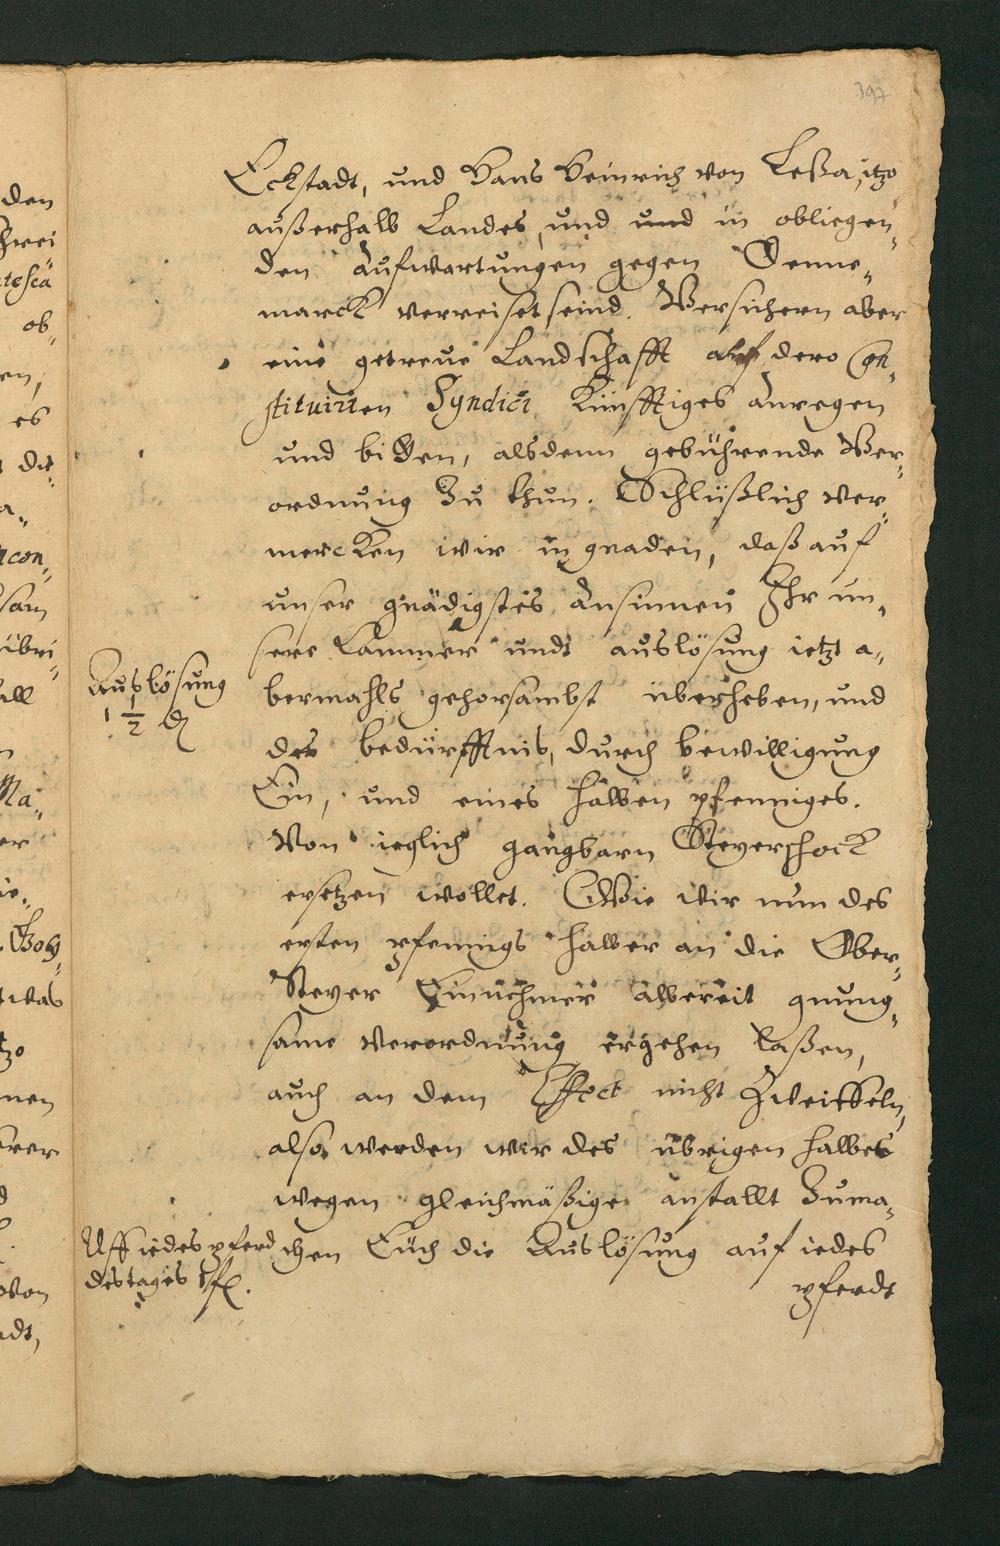 397
Eckstadt, und Hans Heinrich von Leßa, itzo
außerhalb Landes, und und in obliegen„
den Aufwartungen gegen Denne„
marck verreiset seind. Versichern aber
eine getreue Landschafft auf dero con„
stituirten Syndici künfftiges anregen
und bitten, alsdenn gebührende Ver„
ordnung zu thun. Schlüßlich ver„
mercken wir in gnaden, daß auf
unser gnädigstes Ansinnen Ihr un„
sere Cammer undt auslösung ietzt a„
bermahls gehorsambst überheben, und
des bedürffnis, durch bewilligung
Ein, und eines halben pfenniges.
Von ieglich gangbarn Steyerschock
ersetzen wollet. Wie wir nun des
ersten pfennigs halber an die Ober„
Steyer Einnehmer albereit gnung„
same verordnung ergehen laßen,
auch an dem Effect nicht zweiffeln,
also werden wir des übrigen halben
wegen gleichmäßige anstallt zuma„
chen Euch die Auslösung auf iedes
pferdt
Auslösung
1 1/2 ₰
Uff iedes pferd
des tages 1 fl.